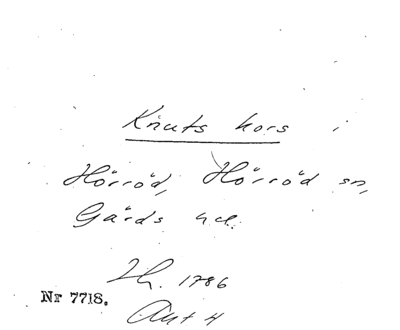 Knuts kors
Hörröd, Hörröd sn,
Gärds hd.
Ih. 1786
Nr 7718.
Aut 4